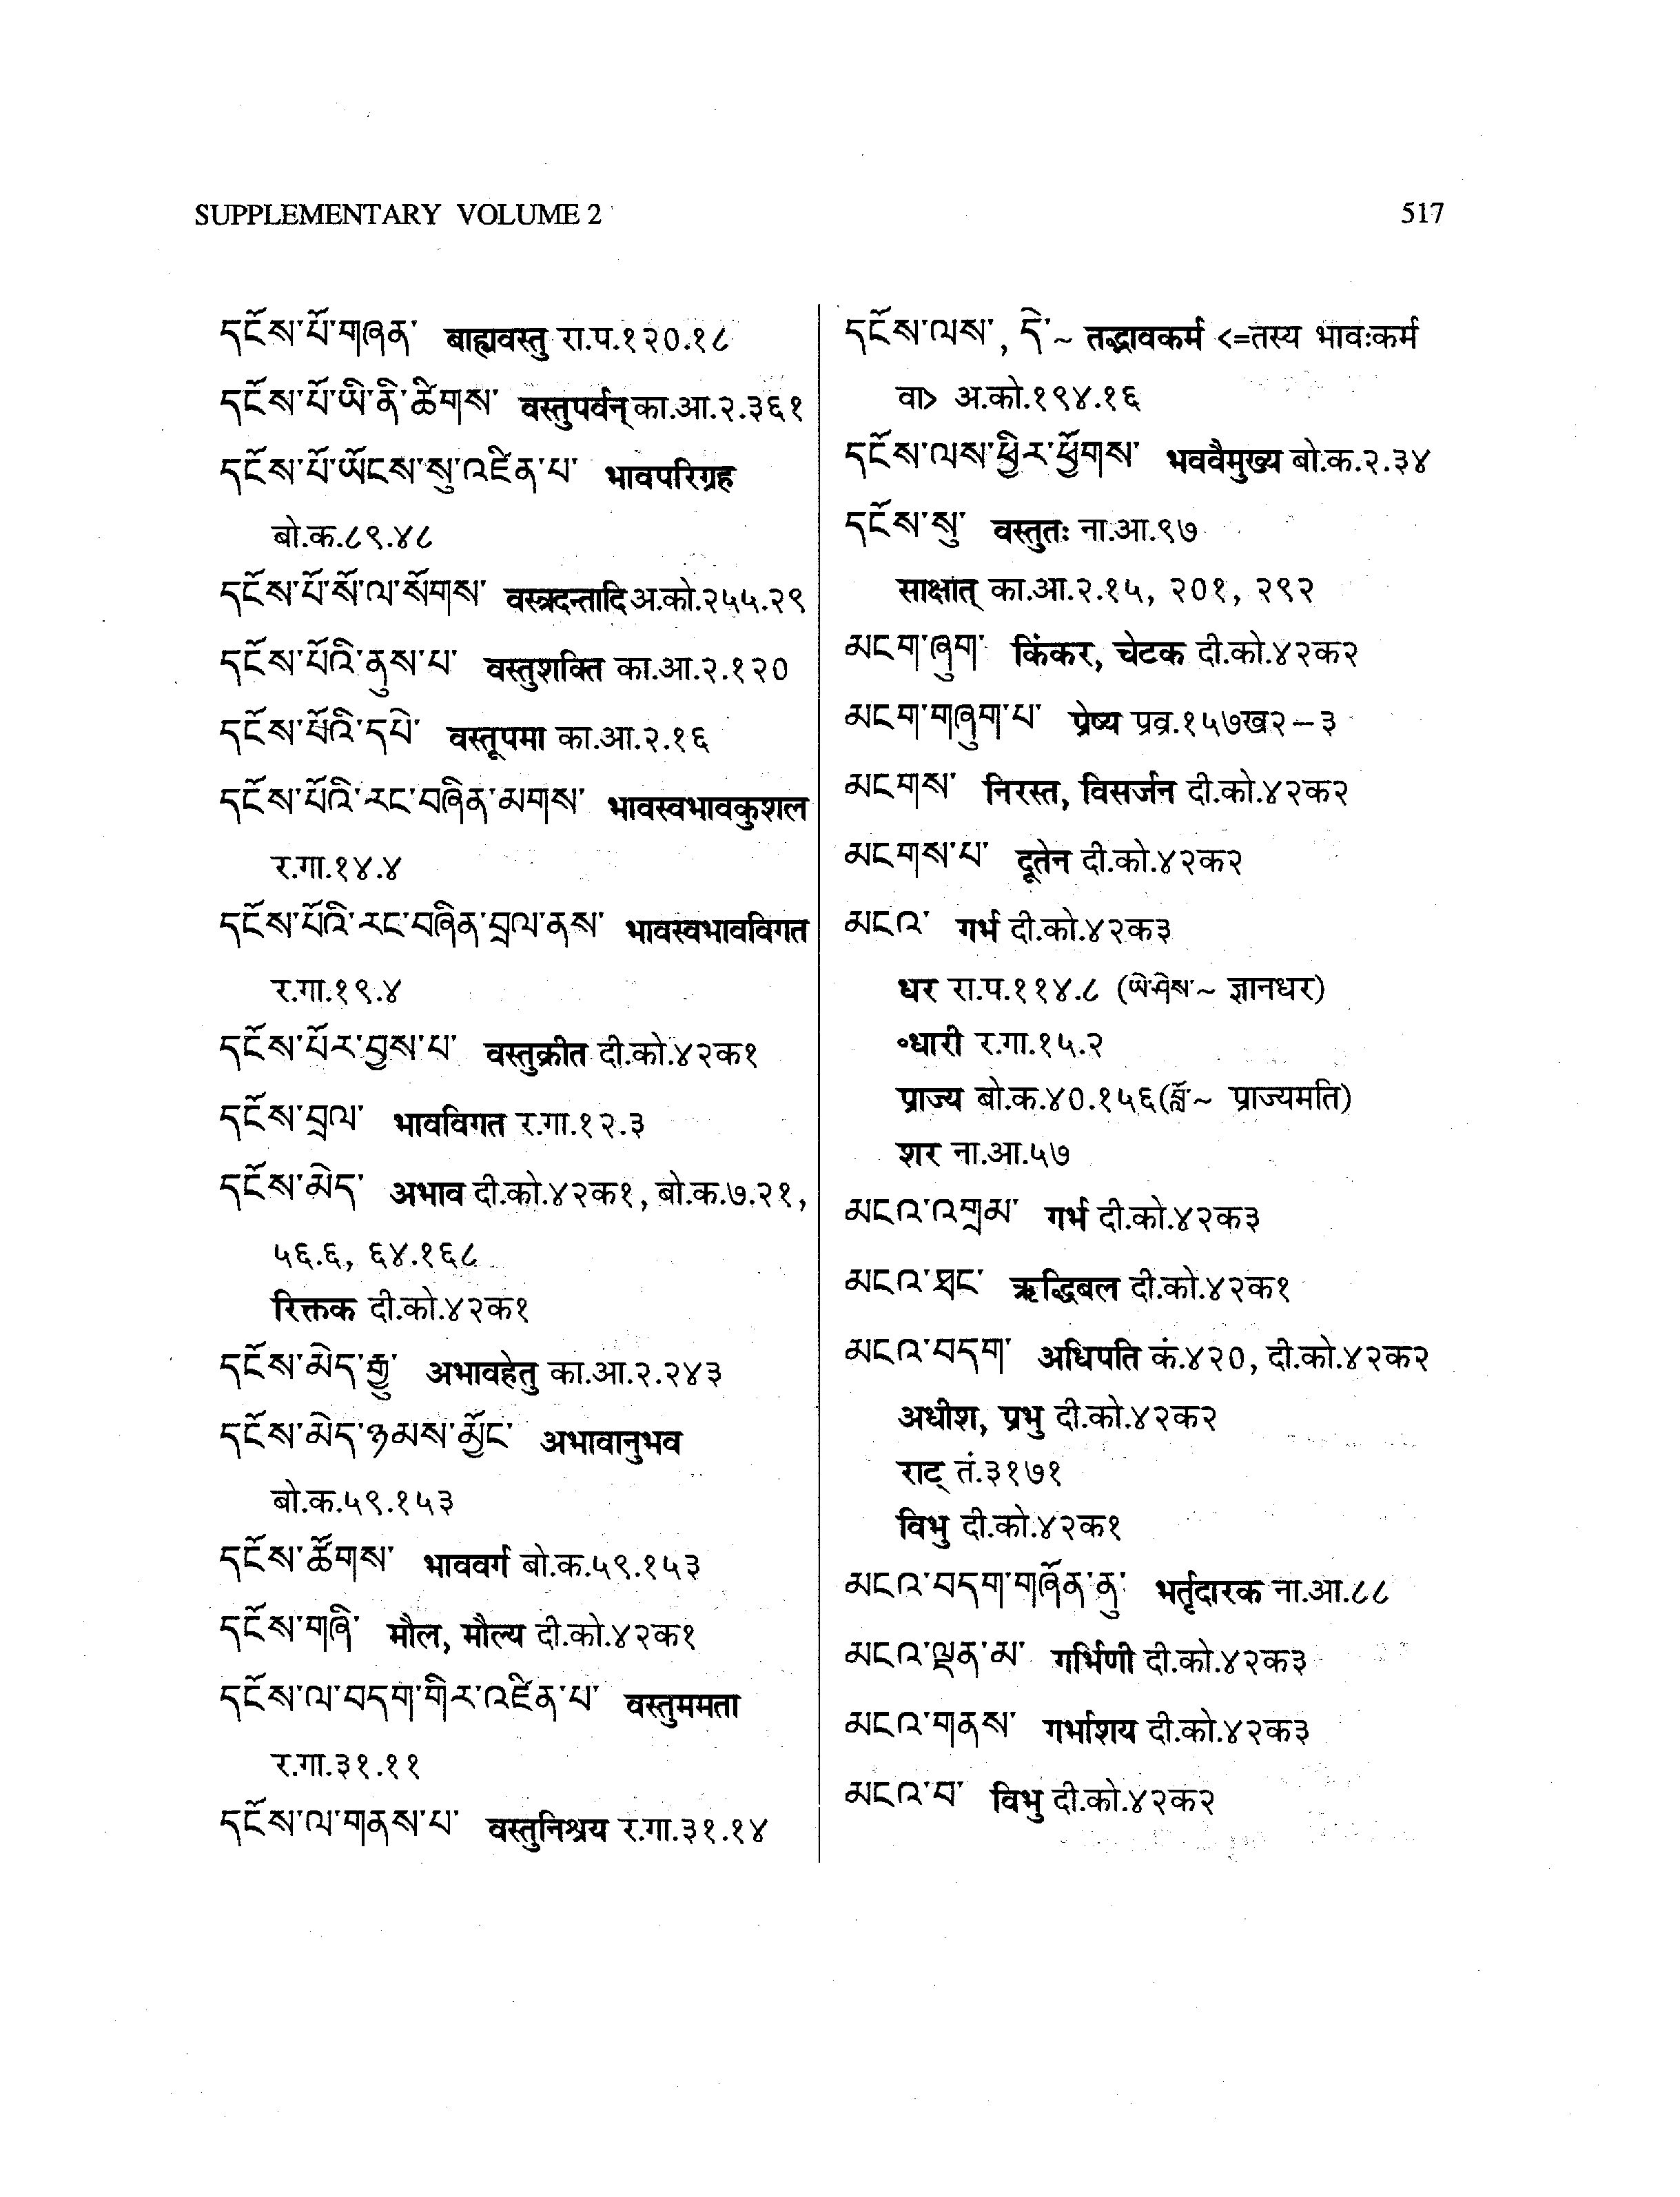 SUPPLEMENTARY VOLUME 2
517
དངོས་པོ་གཞན་ बाह्यवस्तु रा.प.१२०.१८
དངོས་པོ་ཡི་ནི་ཚིགས་ वस्तुपर्वन् का.आ.२.३६१
དངོས་པོ་ཡོངས་སུ་འཛིན་པ་ भावपरिग्रह
बो.क.८९.४८
དངོས་པོ་སོ་ལ་སོགས་ वस्त्रदन्तादि अ.को.२५५.२९
དངོས་པོའི་ནུས་པ་ वस्तुशक्ति का.आ.२.१२०
དངོས་པོའི་དཔེ་ वस्तूपमा का.आ.२.१६
དངོས་པོའི་རང་བཞིན་མགས་ भावस्वभावकुशल
र.गा.१४.४
དངོས་པོའི་རང་བཞིན་བྲལ་ནས་ भावस्वभावविगत
र.गा.१९.४
དངོས་པོར་བྱས་པ་ वस्तुक्रीत दी.को.४२क१
དངོས་བྲལ་ भावविगत र.गा.१२.३
དངོས་མེད་ अभाव दी.को.४२क१, बो.क.७.२१,
५६.६, ६४.१६८
रिक्तक दी.को.४२क१
དངོས་མེད་རྒྱུ་ अभावहेतु का.आ.२.२४३
དངོས་མེད་ཉམས་མྱོང་ अभावानुभव
बो.क.५९.१५३
དངོས་ཚོགས་ भाववर्ग बो.क.५९.१५३
དངོས་གཞི་ मौल, मौल्य दी.को.४२क१
དངོས་ལ་བདག་གིར་འཛིན་པ་ वस्तुममता
र.गा.३१.११
དངོས་ལ་གནས་པ་ वस्तुनिश्रय र.गा.३१.१४
དངོས་ལས་, དེ་~ तद्भावकर्म <=तस्य भावःकर्म
वा> अ.को.१९४.१६
དངོས་ལས་ཕྱིར་ཕྱོགས་ भववैमुख्य बो.क.२.३४
དངོས་སུ་ वस्तुतः ना.आ.९७
साक्षात् का.आ.२.१५, २०१, २९२
མངག་ཞུག་ किंकर, चेटक दी.को.४२क२
མངག་གཞུག་པ་ प्रेष्य प्रव्र.१५७ख२–३
མངགས་ निरस्त, विसर्जन दी.को.४२क२
མངགས་པ་ दूतेन दी.को.४२क२
མངའ་ गर्भ दी.को.४२क३
धर रा.प.११४.८ (ཡེ་ཤེས་~ ज्ञानधर)
॰धारी र.गा.१५.२
प्राज्य बो.क.४०.१५६(བློ་~ प्राज्यमति)
शर ना.आ.५७
མངའ་འགྲམ་ गर्भ दी.को.४२क३
མངའ་ཐང་ ऋद्धिबल दी.को.४२क१
མངའ་བདག་ अधिपति कं.४२०, दी.को.४२क२
अधीश, प्रभु दी.को.४२क२
राट् तं.३१७१
विभु दी.को.४२क१
མངའ་བདག་གཞོན་ནུ་ भर्तृदारक ना.आ.८८
མངའ་ལྡན་མ་ गर्भिणी दी.को.४२क३
མངའ་གནས་ गर्भाशय दी.को.४२क३
མངའ་བ་ विभु दी.को.४२क२